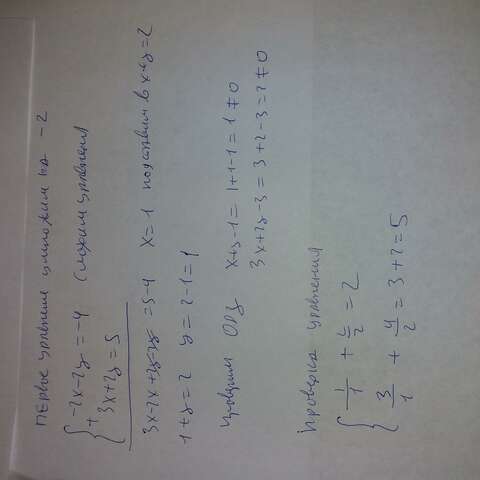 первое уравнение умножим на -2
{ -2x-2y=-4 сложим уравнения
+ 3x+2y=5
3x-2x+2y-2y=5-4 x=1 подставим в x+y=2
1+y=2 y=2-1=1
проверим ОДЗ x+y-1=1+1-1=1≠0
3x+2y-3=3+2-3=2≠0
Проверка уравнения
{ 1/1 + 2/2 = 2
3/1 + 4/2 = 3+2=5